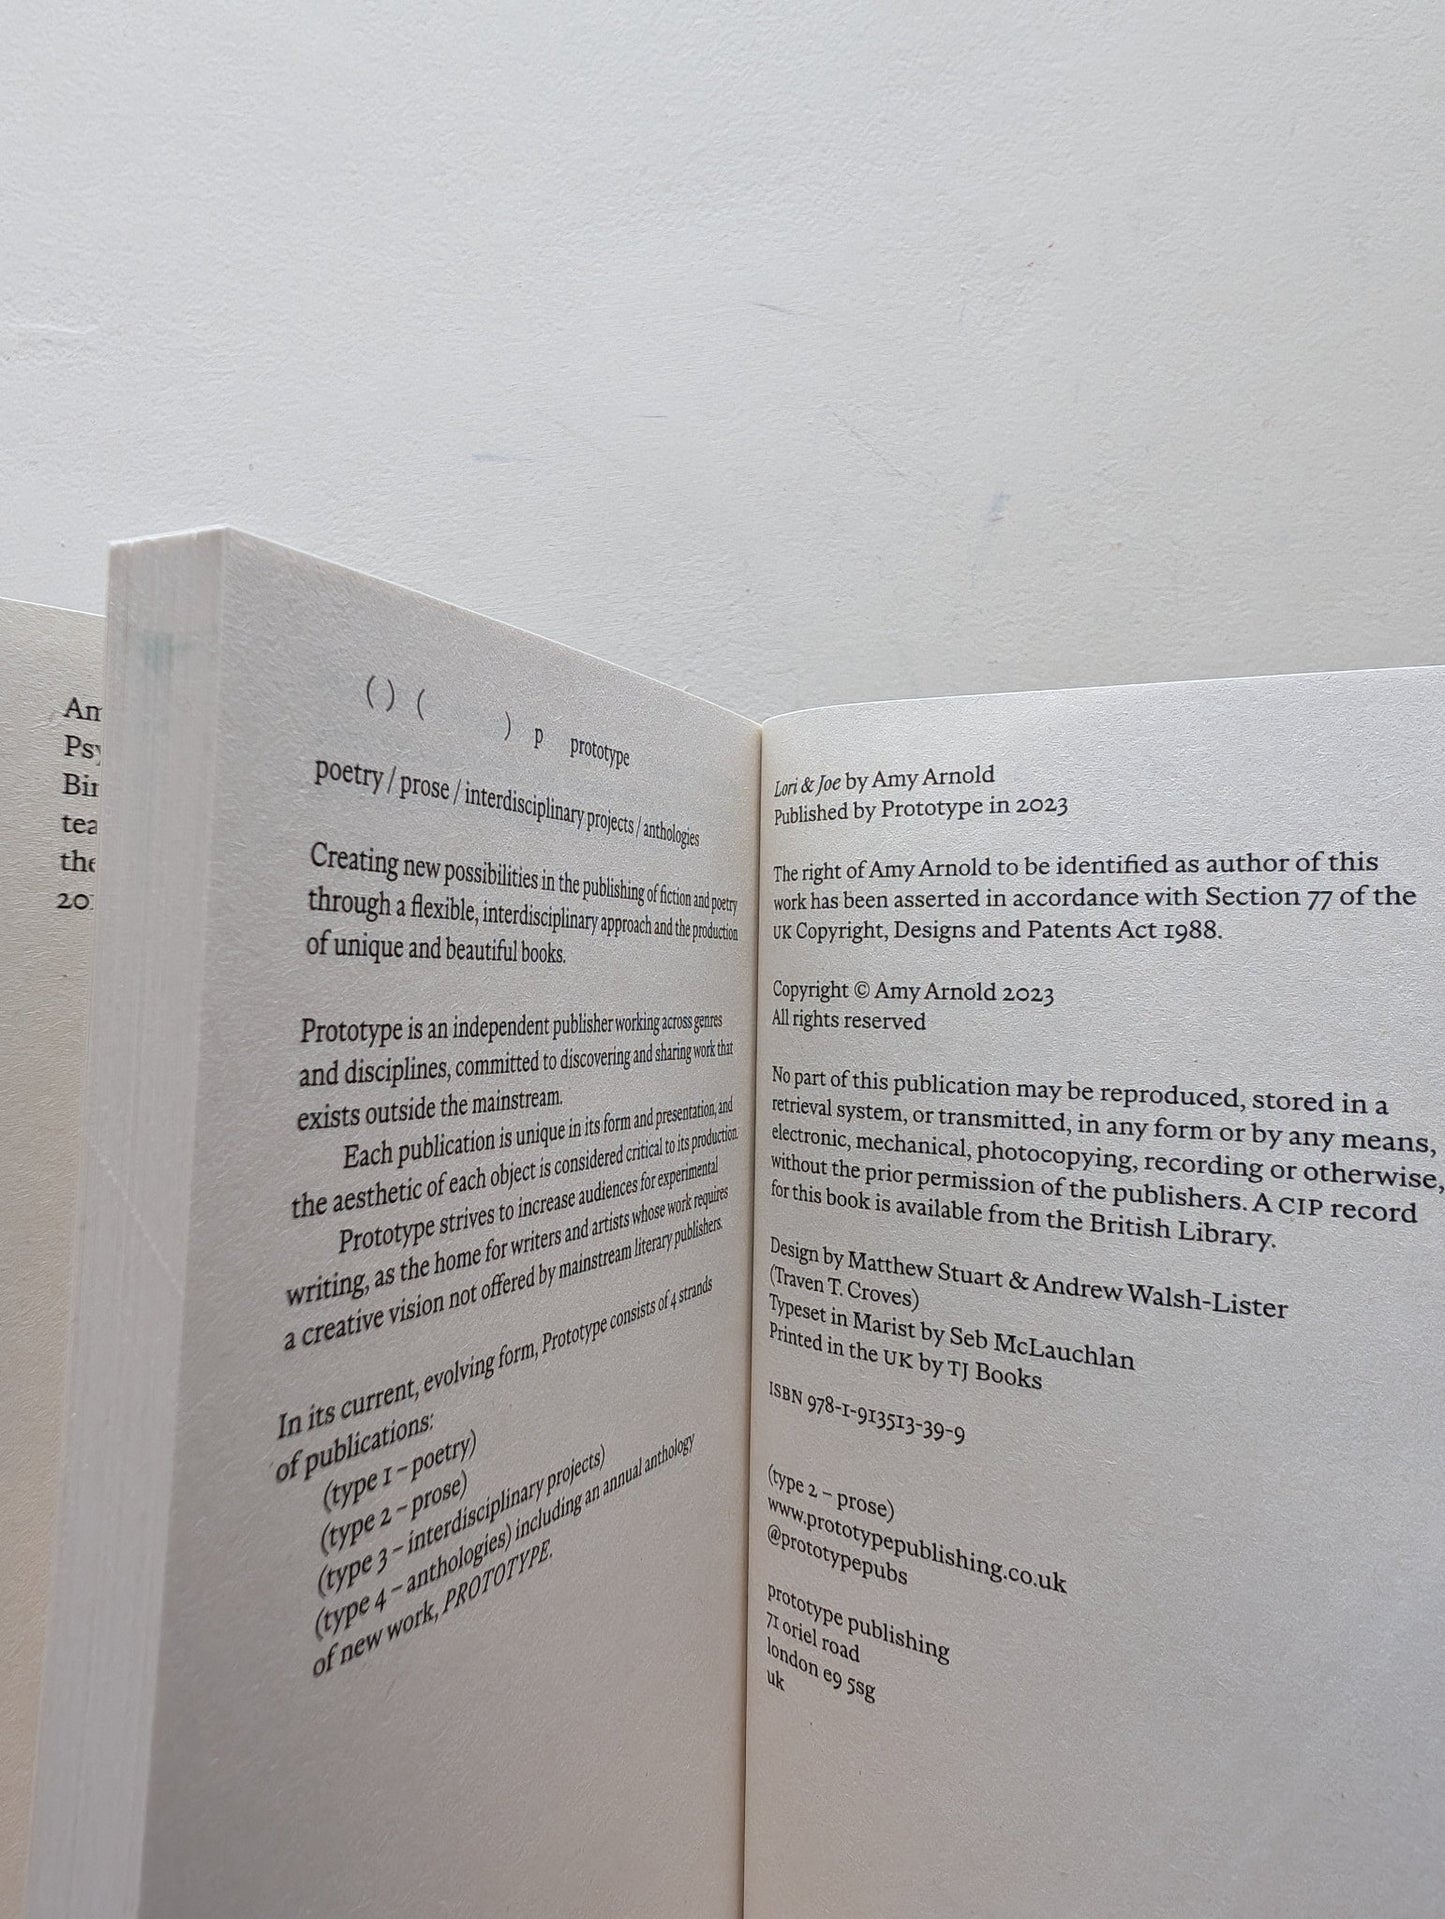 Am
Psy
Bir
tea
the
20
( ) ( ) p prototype
poetry / prose / interdisciplinary projects / anthologies
Creating new possibilities in the publishing of fiction and poetry
through a flexible, interdisciplinary approach and the production
of unique and beautiful books.
Prototype is an independent publisher working across genres
and disciplines, committed to discovering and sharing work that
exists outside the mainstream.
Each publication is unique in its form and presentation, and
the aesthetic of each object is considered critical to its production.
Prototype strives to increase audiences for experimental
writing, as the home for writers and artists whose work requires
a creative vision not offered by mainstream literary publishers.
In its current, evolving form, Prototype consists of 4 strands
of publications:
(type 1 – poetry)
(type 2 – prose)
(type 3 – interdisciplinary projects)
(type 4 – anthologies) including an annual anthology
of new work, PROTOTYPE.
Lori & Joe by Amy Arnold
Published by Prototype in 2023
The right of Amy Arnold to be identified as author of this
work has been asserted in accordance with Section 77 of the
UK Copyright, Designs and Patents Act 1988.
Copyright © Amy Arnold 2023
All rights reserved
No part of this publication may be reproduced, stored in a
retrieval system, or transmitted, in any form or by any means,
electronic, mechanical, photocopying, recording or otherwise,
without the prior permission of the publishers. A CIP record
for this book is available from the British Library.
Design by Matthew Stuart & Andrew Walsh-Lister
(Traven T. Croves)
Typeset in Marist by Seb McLauchlan
Printed in the UK by TJ Books
ISBN 978-1-913513-39-9
(type 2 – prose)
www.prototypepublishing.co.uk
@prototypepubs
prototype publishing
71 oriel road
london e9 5sg
uk